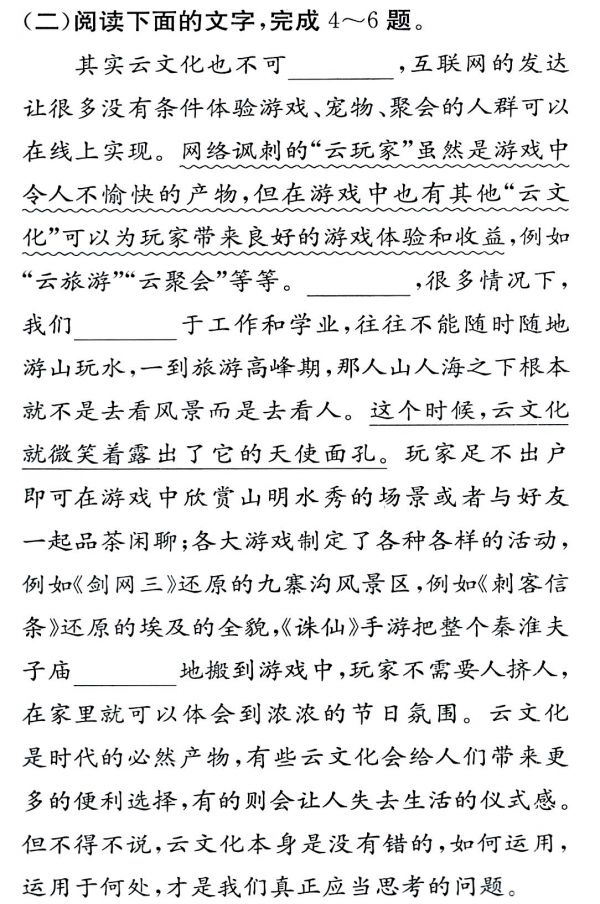 (二)阅读下面的文字,完成 4～6 题。
其实云文化也不可________,互联网的发达
让很多没有条件体验游戏、宠物、聚会的人群可以
在线上实现。网络讽刺的“云玩家”虽然是游戏中
令人不愉快的产物,但在游戏中也有其他“云文
化”可以为玩家带来良好的游戏体验和收益,例如
“云旅游”“云聚会”等等。________,很多情况下,
我们________于工作和学业,往往不能随时随地
游山玩水,一到旅游高峰期,那人山人海之下根本
就不是去看风景而是去看人。这个时候,云文化
就微笑着露出了它的天使面孔。玩家足不出户
即可在游戏中欣赏山明水秀的场景或者与好友
一起品茶闲聊;各大游戏制定了各种各样的活动,
例如《剑网三》还原的九寨沟风景区,例如《刺客信
条》还原的埃及的全貌,《诛仙》手游把整个秦淮夫
子庙________地搬到游戏中,玩家不需要人挤人,
在家里就可以体会到浓浓的节日氛围。云文化
是时代的必然产物,有些云文化会给人们带来更
多的便利选择,有的则会让人失去生活的仪式感。
但不得不说,云文化本身是没有错的,如何运用,
运用于何处,才是我们真正应当思考的问题。